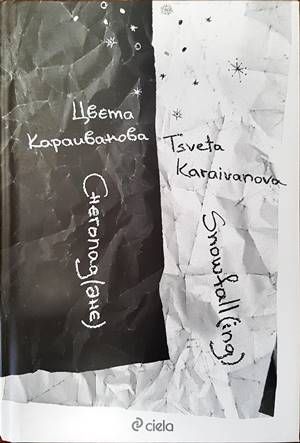 Цвета
Караиванова
Tsveta
Karaivanova
Снегопад(ане)
Snowfall(ing)
ciela